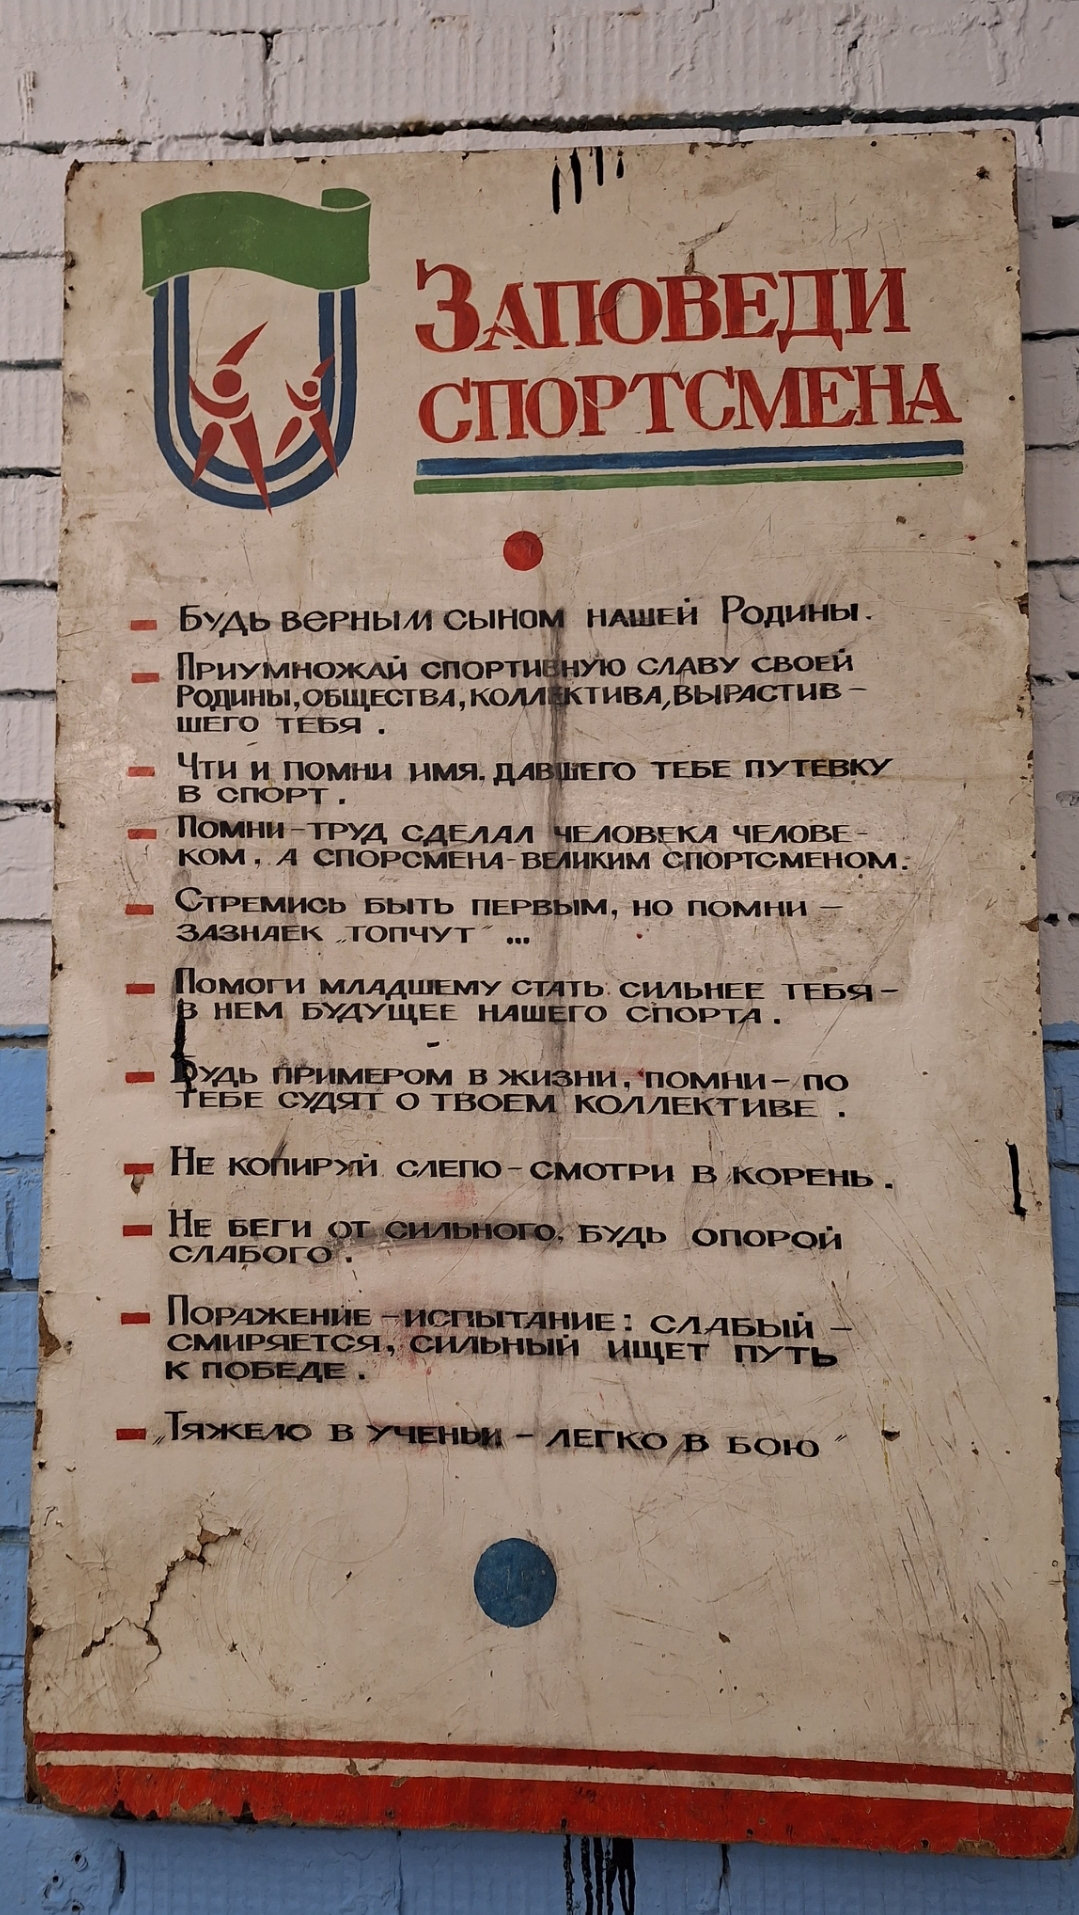 ЗАПОВЕДИ
СПОРТСМЕНА
– БУДЬ ВЕРНЫМ СЫНОМ НАШЕЙ РОДИНЫ.
– ПРИУМНОЖАЙ СПОРТИВНУЮ СЛАВУ СВОЕЙ
РОДИНЫ, ОБЩЕСТВА, КОЛЛЕКТИВА, ВЫРАСТИВ –
ШЕГО ТЕБЯ.
– ЧТИ И ПОМНИ ИМЯ, ДАВШЕГО ТЕБЕ ПУТЕВКУ
В СПОРТ.
– ПОМНИ – ТРУД СДЕЛАЛ ЧЕЛОВЕКА ЧЕЛОВЕ-
КОМ, А СПОРСМЕНА - ВЕЛИКИМ СПОРТСМЕНОМ.
– СТРЕМИСЬ БЫТЬ ПЕРВЫМ, НО ПОМНИ –
ЗАЗНАЕК „ТОПЧУТ" ...
– ПОМОГИ МЛАДШЕМУ СТАТЬ СИЛЬНЕЕ ТЕБЯ –
В НЕМ БУДУЩЕЕ НАШЕГО СПОРТА.
– БУДЬ ПРИМЕРОМ В ЖИЗНИ, ПОМНИ – ПО
ТЕБЕ СУДЯТ О ТВОЕМ КОЛЛЕКТИВЕ.
– НЕ КОПИРУЙ СЛЕПО – СМОТРИ В КОРЕНЬ.
– НЕ БЕГИ ОТ СИЛЬНОГО, БУДЬ ОПОРОЙ
СЛАБОГО.
– ПОРАЖЕНИЕ – ИСПЫТАНИЕ: СЛАБЫЙ –
СМИРЯЕТСЯ, СИЛЬНЫЙ ИЩЕТ ПУТЬ
К ПОБЕДЕ.
– „ТЯЖЕЛО В УЧЕНЬИ – ЛЕГКО В БОЮ"